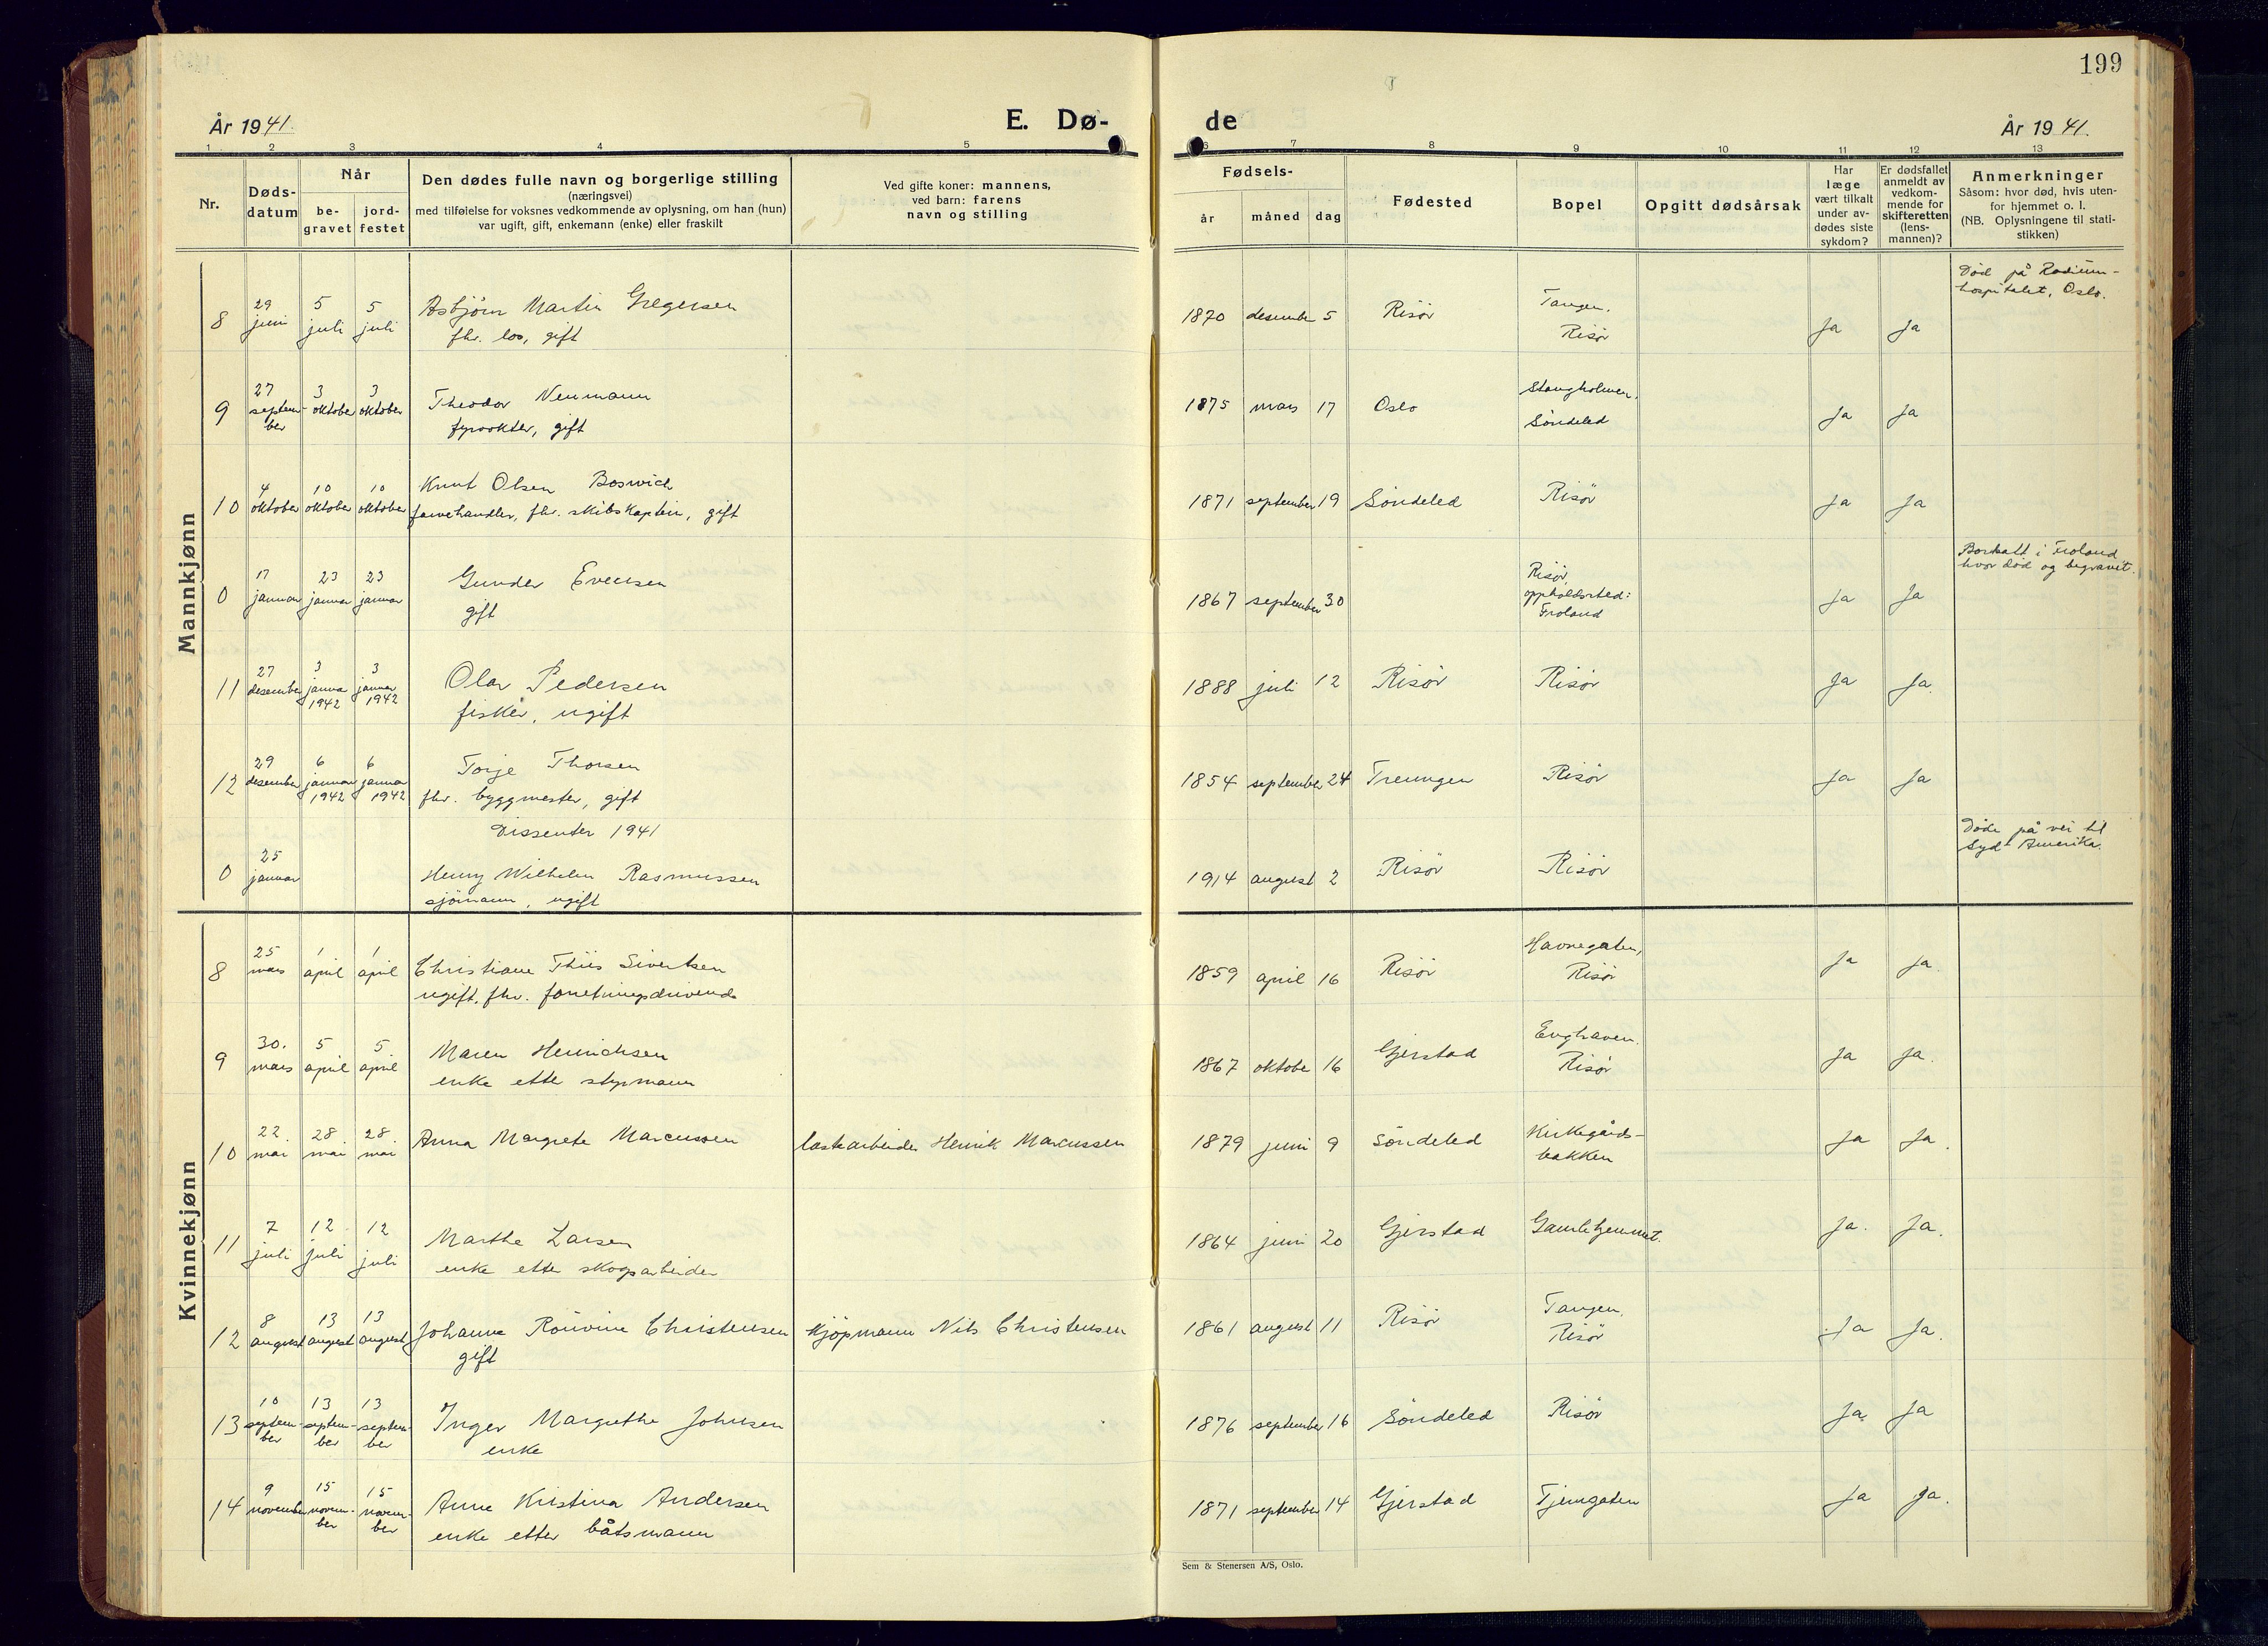 199
År 1941.
E. Dø-
de
År 1941.
1 2 3 4 5 6 7 8 9 10 11 12 13
Nr.
Døds-
datum
Når
be-
gravet
jord-
festet
Den dødes fulle navn og borgerlige stilling
(næringsvei)
med tilføielse for voksnes vedkommende av oplysning, om han (hun)
var ugift, gift, enkemann (enke) eller fraskilt
Ved gifte koner: mannens,
ved barn: farens
navn og stilling
Fødsels-
år måned dag
Fødested
Bopel
Opgitt dødsårsak
Har
læge
vært tilkalt
under av-
dødes siste
sykdom?
Er dødsfallet
anmeldt av
vedkom-
mende for
skifteretten
(lens-
mannen)?
Anmerkninger
Såsom: hvor død, hvis uten-
for hjemmet o. l.
(NB. Oplysningene til stati-
stikken)
Mannkjønn
8 29 juni 5 juli 5 juli Asbjørn Martin Gregersen
fhv. los, gift
1870 desember 5 Risör Tangen,
Risör Ja Ja
Död på Radium-
hospitalet, Oslo.
9 27 septem-
ber 3 oktober 3 oktober Theodor Neumann
fyrvokter, gift
1875 mars 17 Oslo Stangholmen,
Söndeled Ja Ja
10 4 oktober 10 oktober 10 oktober Knut Olsen Boswich
farvehandler, fhv. skibskaptein, gift
1871 september 19 Söndeled Risör Ja Ja
0 17 januar 23 januar 23 januar Gunder Evensen
gift
1867 september 30 Risör,
oppholdssted:
Froland Ja Ja
Bortsatt i Froland
hvor död og begravet.
11 27 desember 3 januar
1942 3 januar
1942 Olav Pedersen
fisker, ugift
1888 juli 12 Risör Risör Ja Ja.
12 29 desember 6 januar
1942 6 januar
1942 Torje Thorsen
fhv. byggmester, gift
1854 september 24 Treungen Risör Ja Ja
Dissenter 1941
0 25 januar Henry Wilhelm Rasmussen
sjömann, ugift
1914 august 2 Risör Risör
Döde på vei til
Syd-Amerika
Kvinnekjønn
8 25 mars 1 april 1 april Christiane Thiis Sivertsen
ugift, fhv. forretningsdrivende
1859 april 16 Risör Havnegaten,
Risör Ja Ja.
9 30. mars 5 april 5 april Maren Henrichsen
enke etter styrmann
1867 oktober 16 Gjerstad Enghaven.
Risör Ja Ja.
10 22. mai 28 mai 28. mai Anna Margrete Marcussen
lastearbeider Henrik Marcussen
1879 juni 9 Söndeled Kirkegårds-
bakken Ja Ja.
11 7 juli 12 juli 12 juli Marthe Larsen
enke etter skogsarbeider
1864 juni 20 Gjerstad Gamlehjemmet. Ja. Ja.
12 8 august 13 august 13 august Johanne Rönvine Christensen
gift
Kjöpmann Nils Christensen
1861 august 11 Risör Tangen,
Risör Ja Ja.
13 10 septem-
ber 13 septem-
ber 13 septem-
ber Inger Margrethe Johnsen
enke
1876 september 16 Söndeled Risör Ja. Ja
14 9 november 15 novem-
ber 15 novem-
ber Anne Kristina Andersen
enke etter båtsmann
1871 september 14 Gjerstad Tjenngaten Ja Ja.
Sem & Stenersen A/S, Oslo.